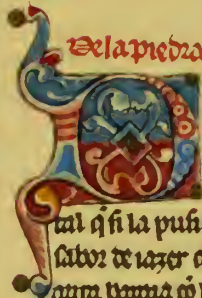 De la piedra
D
tal q̃ si la pusi
sabor de iazer c